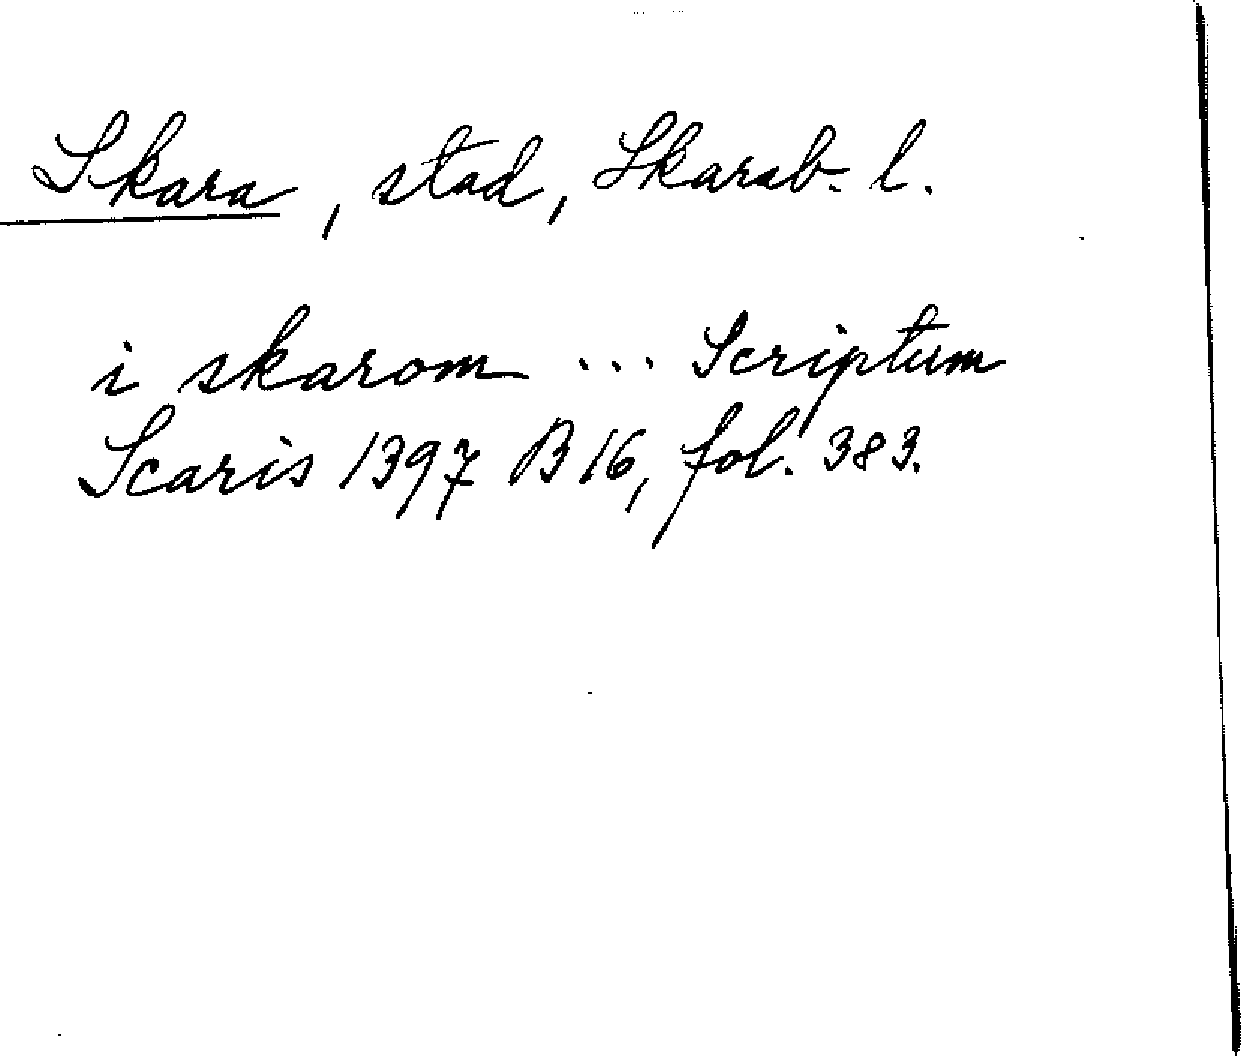 Skara, stad, Skarab. l.
i skarom ... Scriptum
Scaris 1397 B 16, fol. 383.